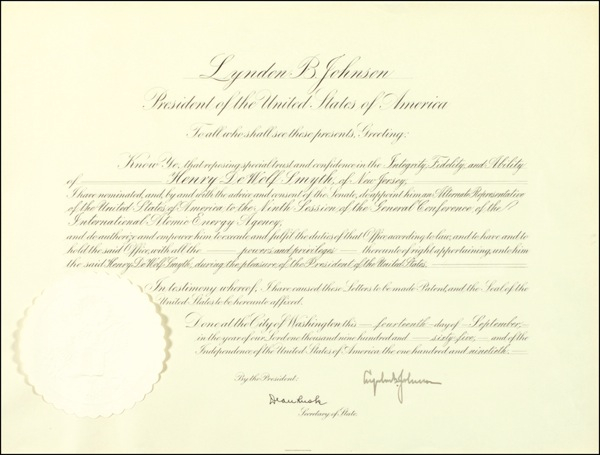 Lyndon B. Johnson
President of the United States of America
To all who shall see these presents, Greeting:
Know Ye, that reposing special trust and confidence in the Integrity, Fidelity, and Ability
of Henry DeWolf Smyth, of New Jersey,
I have nominated, and, by and with the advice and consent of the Senate, do appoint him an Alternate Representative
of the United States of America to the Ninth Session of the General Conference of the
International Atomic Energy Agency,
and do authorize and empower him to execute and fulfil the duties of that Office according to law, and to have and to
hold the said Office, with all the powers and privileges thereunto of right appertaining, unto him
the said Henry DeWolf Smyth, during the pleasure of the President of the United States.
In testimony whereof, I have caused these Letters to be made Patent, and the Seal of the
United States to be hereunto affixed.
Done at the City of Washington this fourteenth day of September,
in the year of our Lord one thousand nine hundred and sixty-five, and of the
Independence of the United States of America the one hundred and ninetieth.
By the President: Lyndon B. Johnson
Dean Rusk
Secretary of State.